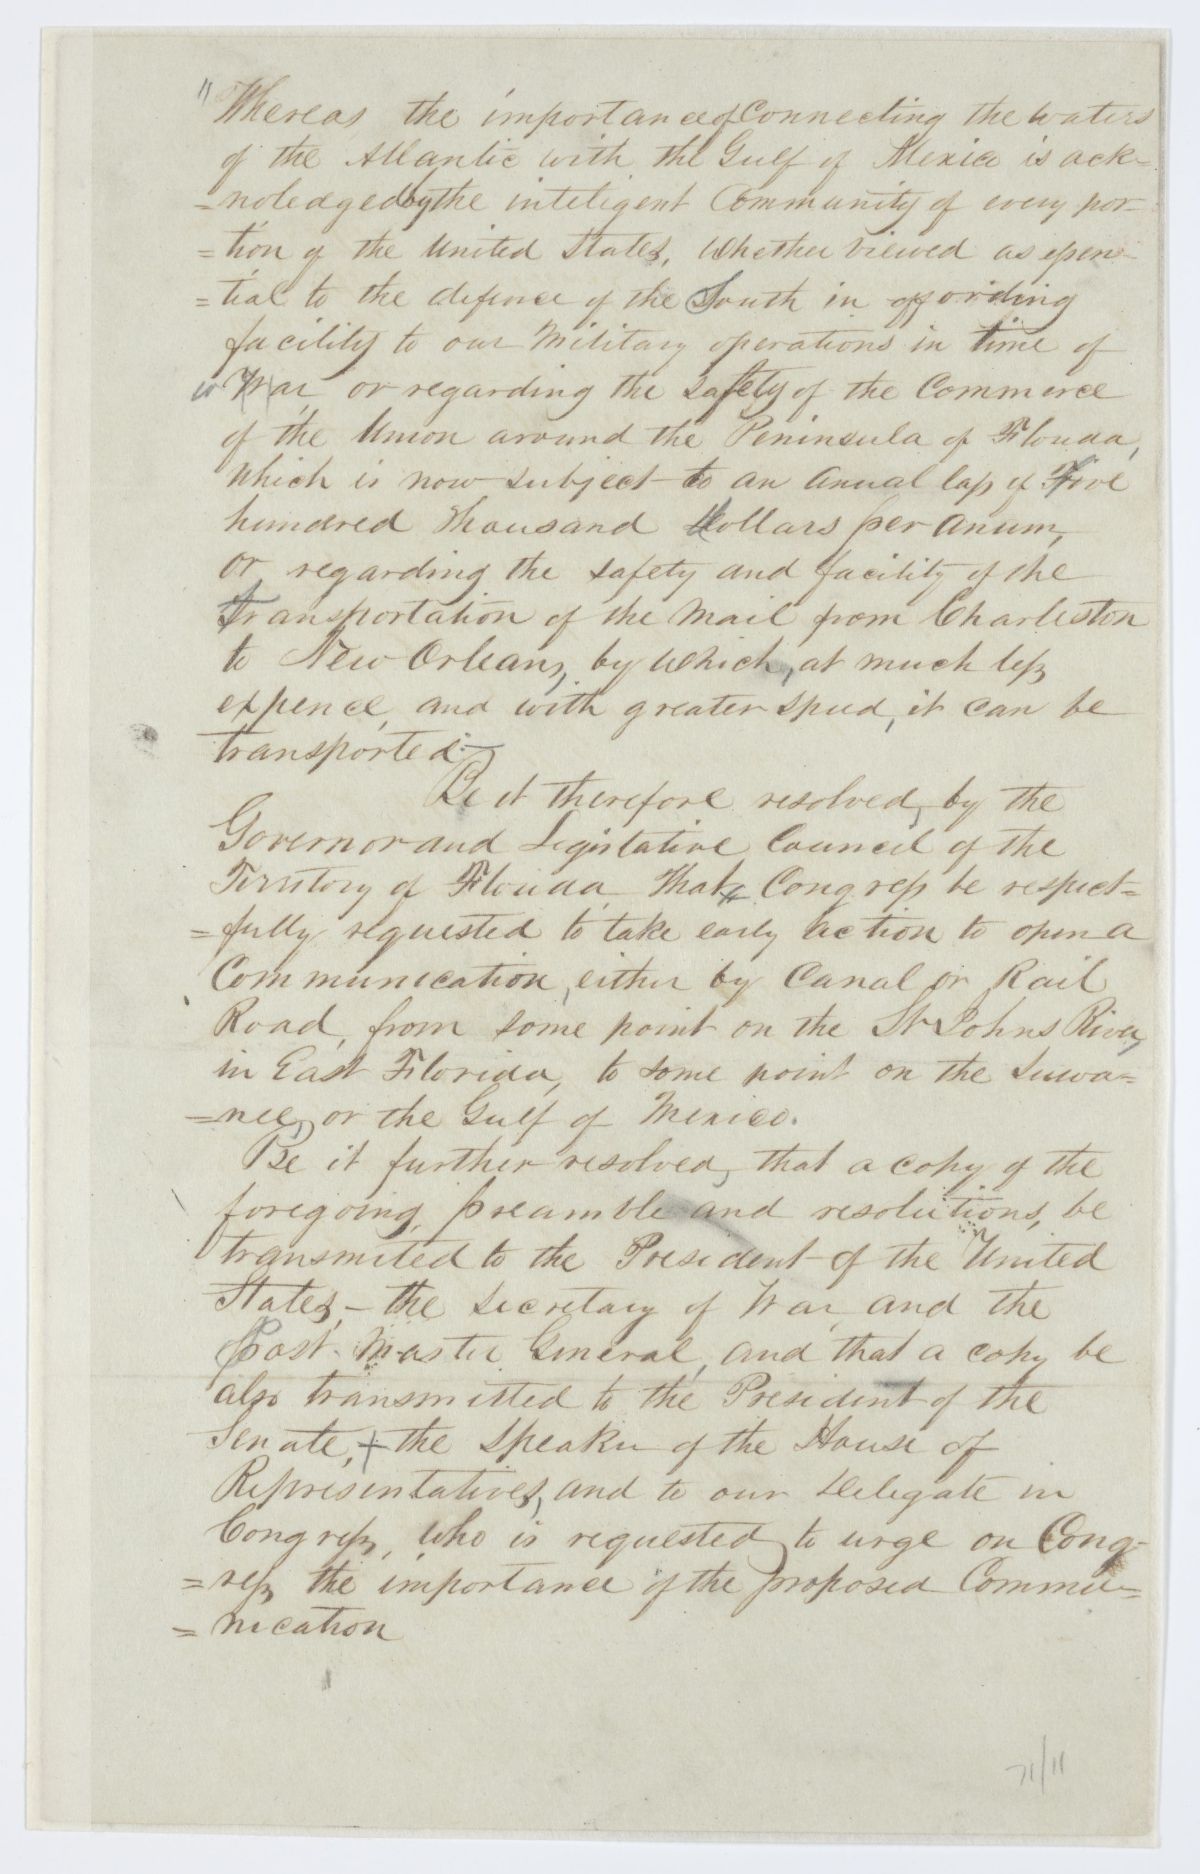 "Whereas the importance of Connecting the waters
of the Atlantic with the Gulf of Mexico is ack=
=noledged by the inteligent Community of every por=
=tion of the United States, Whether viewed as essen=
=tial to the defence of the South in affording
facility to our Military operations in time of
War or regarding the safety of the Commerce
of the Union around the Peninsula of Florida,
which is now subject to an anual loss of Five
hundred Thousand Dollars per anum,
or regarding the safety and facility of the
transportation of the Mail from Charleston
to New Orleans, by which, at much less
expence, and with greater speed, it can be
transported:
Be it therefore resolved, by the
Governor and Legislative Council of the
Territory of Florida That, Congress be respect=
=fully requested to take early action to open a
Communication, either by Canal or Rail
Road, from some point on the St Johns River,
in East Florida, to some point on the Suwa=
=nee, or the Gulf of Mexico.
Be it further resolved, that a copy of the
foregoing, preamble and resolutions, be
transmited to the President of the United
States, – the Secretary of War, and the
Post Master General, and that a copy be
also transmitted to the President of the
Senate, + the Speaker of the House of
Representatives, and to our Delegate in
Congress, who is requested to urge on Cong=
=ress, the importance of the proposed Commu=
=nication
71/11